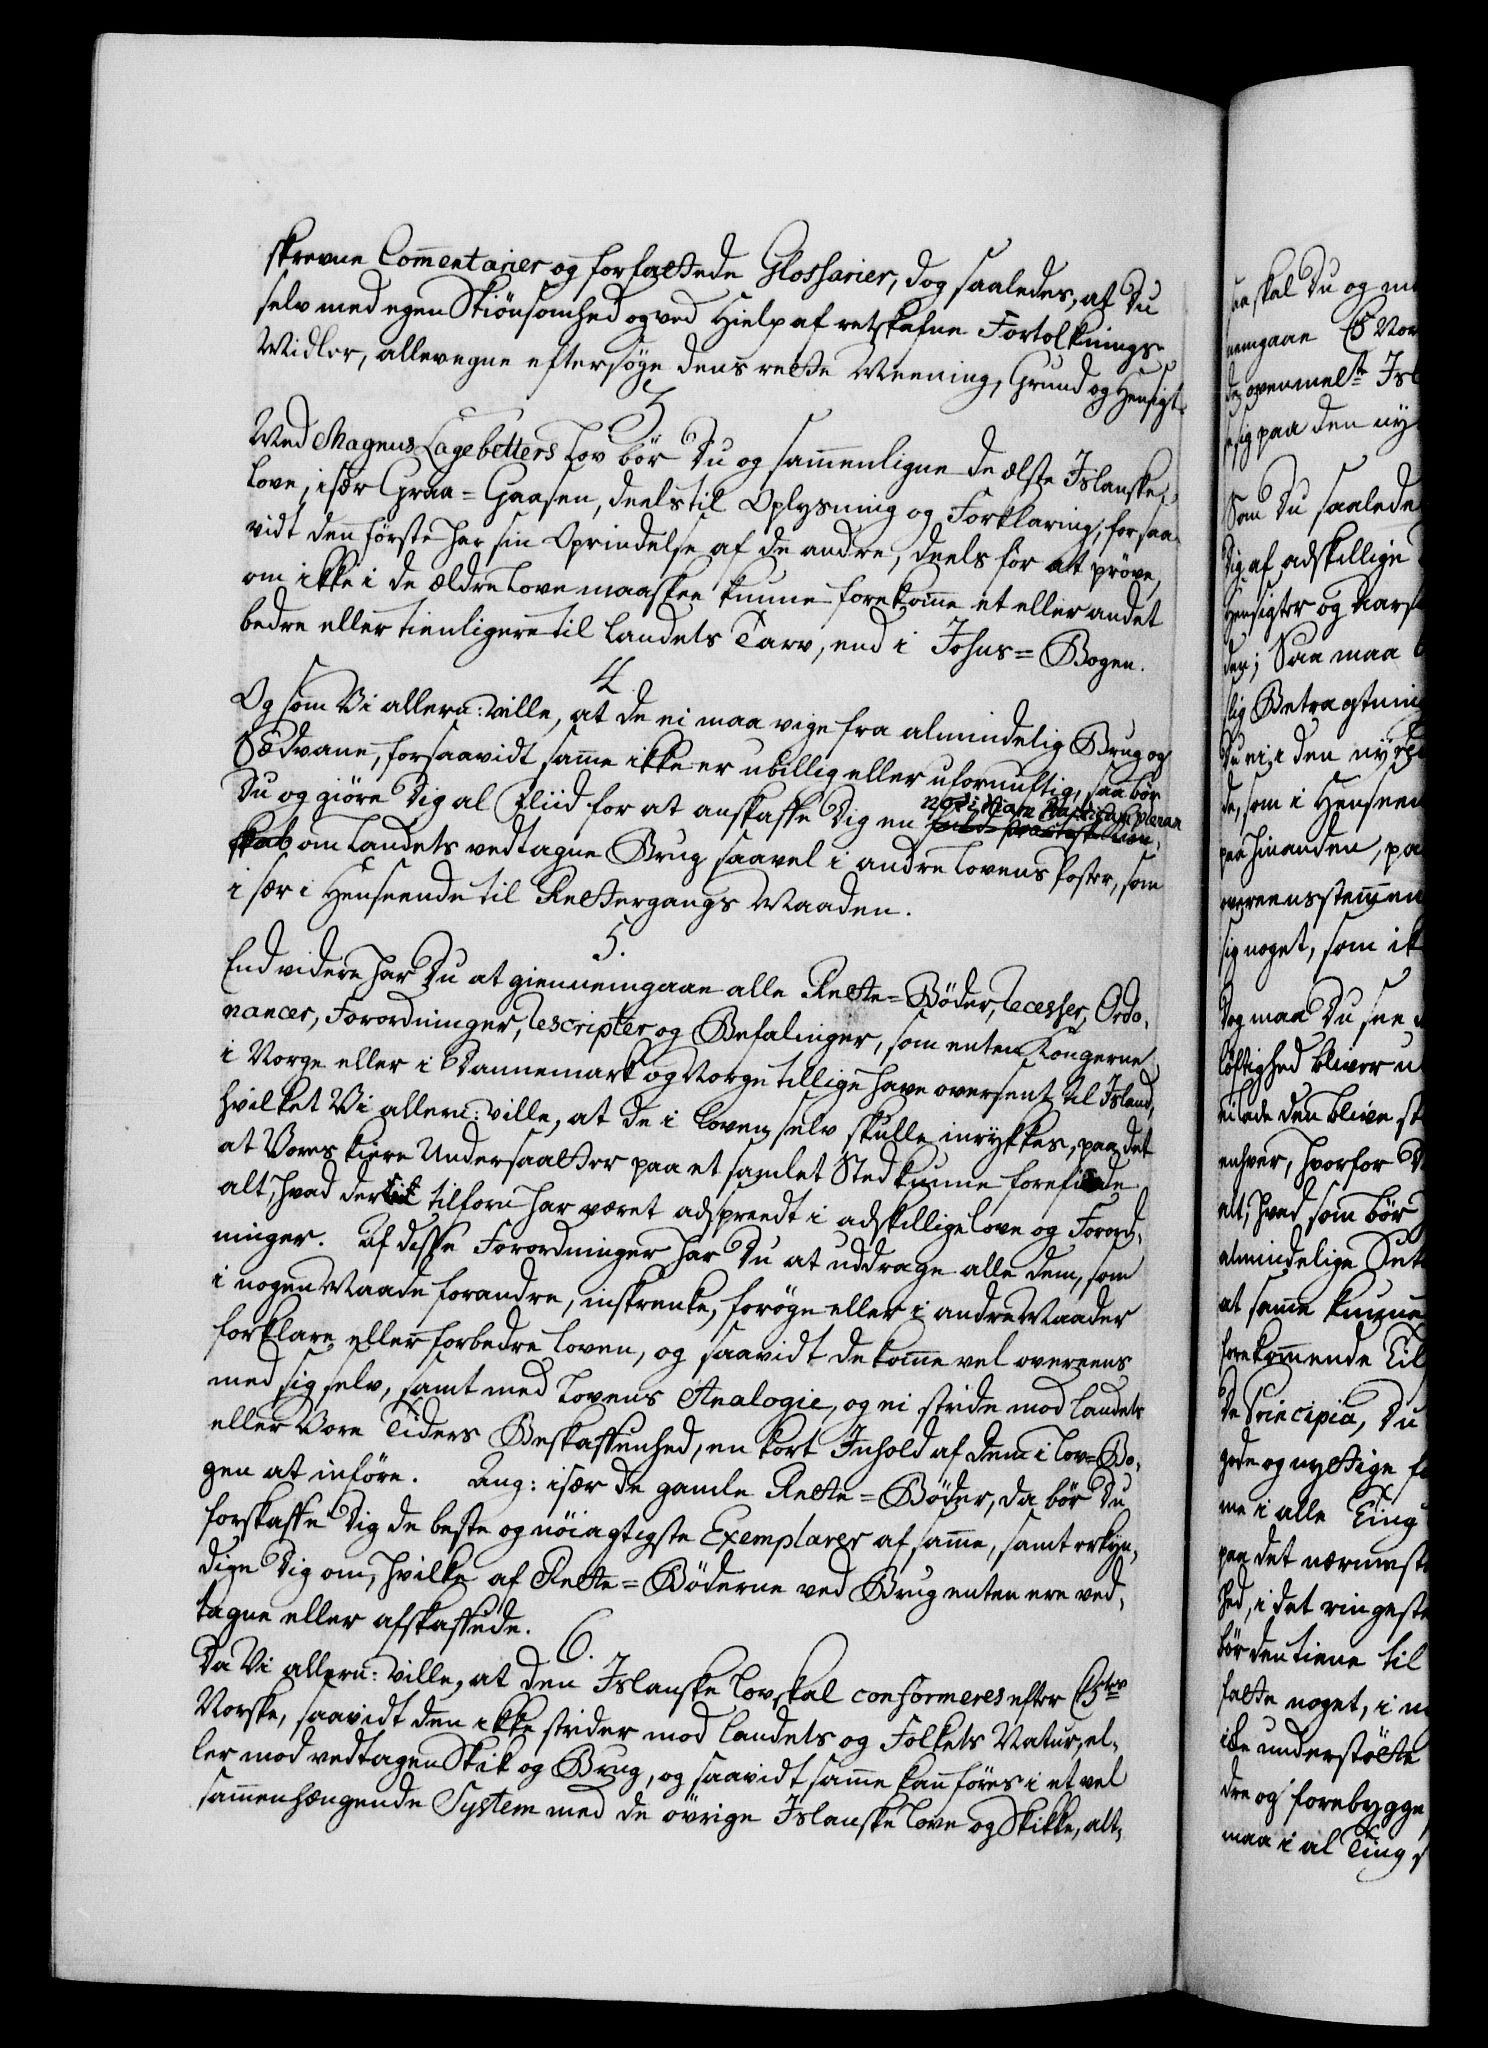 skrevne Com̅entarier og forfattede Glossarier, dog saaledes, at Du
selv med egen Skiönsomhed og ved Hielp af retskafne Fortolknings-
Midler, allevegne eftersöge dens rette Meening, Grund og Hensigt.
3
Med Magnus Lagebetters Lov bör Du og sam̅enligne de ælste Islanske
Love, især Graa=Gaasen, deels til Oplysning og Forklaring, forsaa-
vidt den förste har sin Oprindelse af de andre, deels for at pröve,
om ikke i de ældre Love maaskee kunne forekom̅e et eller andet
bedre eller tienligere til Landets Tarv, end i Johns=Bogen.
4.
Og som Vi allern: ville, at de ei maa vige fra almindelig Brug og
Sædvane, forsaavidt sam̅e ikke er ubillig eller ufornuftig, saa bör
Du og giöre Dig al Fliid for at anskaffe Dig en notitiam
om Landets vedtagne Brug saavel i andre Lovens Poster, som
i sær i Henseende til Rettergangs Maaden.
5.
End videre har Du at giennemgaae alle Rette=Böder, Recesser, Ordo-
nancer, Forordninger, Rescripter og Befalinger, som enten Kongerne
i Norge eller i Dannemark og Norge tillige have oversent til Island,
hvilket Vi allern: ville, at de i Loven selv skulle inrykkes, paa det
at Vores kiere Undersaatter paa et samlet Sted kunne forefinde
alt, hvad der tilforn har været adspreedt i adskillige Love og Forord-
ninger. Af disse Forordninger har Du at uddrage alle dem, som
i nogen Maade forandre, inskrenke, foröge eller i andre Maader
forklare eller forbedre Loven, og saavidt de kom̅e vel overeens
med sig selv, samt med Lovens Analogie, og ei stride mod Landets
eller Vore Tiders Beskaffenhed, en kort Inhold af dem i Lov=Bo-
gen at införe. Ang: især de gamle Rette=Böder, da bör Du
forskaffe Dig de beste og nöiagtigste Exemplarer af sam̅e, samt erkyn-
dige Dig om, hvilke af Rette=Böderne ved Brug enten ere ved-
tagne eller afskaffede.
6.
Da Vi allern: ville, at den Islanske Lov skal conformeres efter C 5tes
Norske, saavidt den ikke strider mod Landets og Folkets Natur, el-
ler mod vedtagen Skik og Brug, og saavidt sam̅e kan föres i et vel
sam̅enhængende System med de övrige Islanske Love og Skikke, alt-
saa skal Du og
nemgaae C 5 Nor
ovenmelte Isl
sig paa den ny
Du saalede
Dig af adskillige
Hensigter og
den; Saa maa
lig Betragtning
Du ei i den ny
de, som i Henseen
paa hinanden, pa
overeensstem̅en
sig noget, som ik
Dog maa Du see
löftighed bliver u
den blive st
enhver, hvorfor D
alt, hvad som bör
almindelige
at sam̅e kunne
forekom̅ende Til
De Principia, Du
gode og nyttige
me i alle Ting
paa det nærmeste
hed, i det ringeste
bör den tiene til
fatte noget, i
ikke understötte
dre og forebygge
maa i al Ting